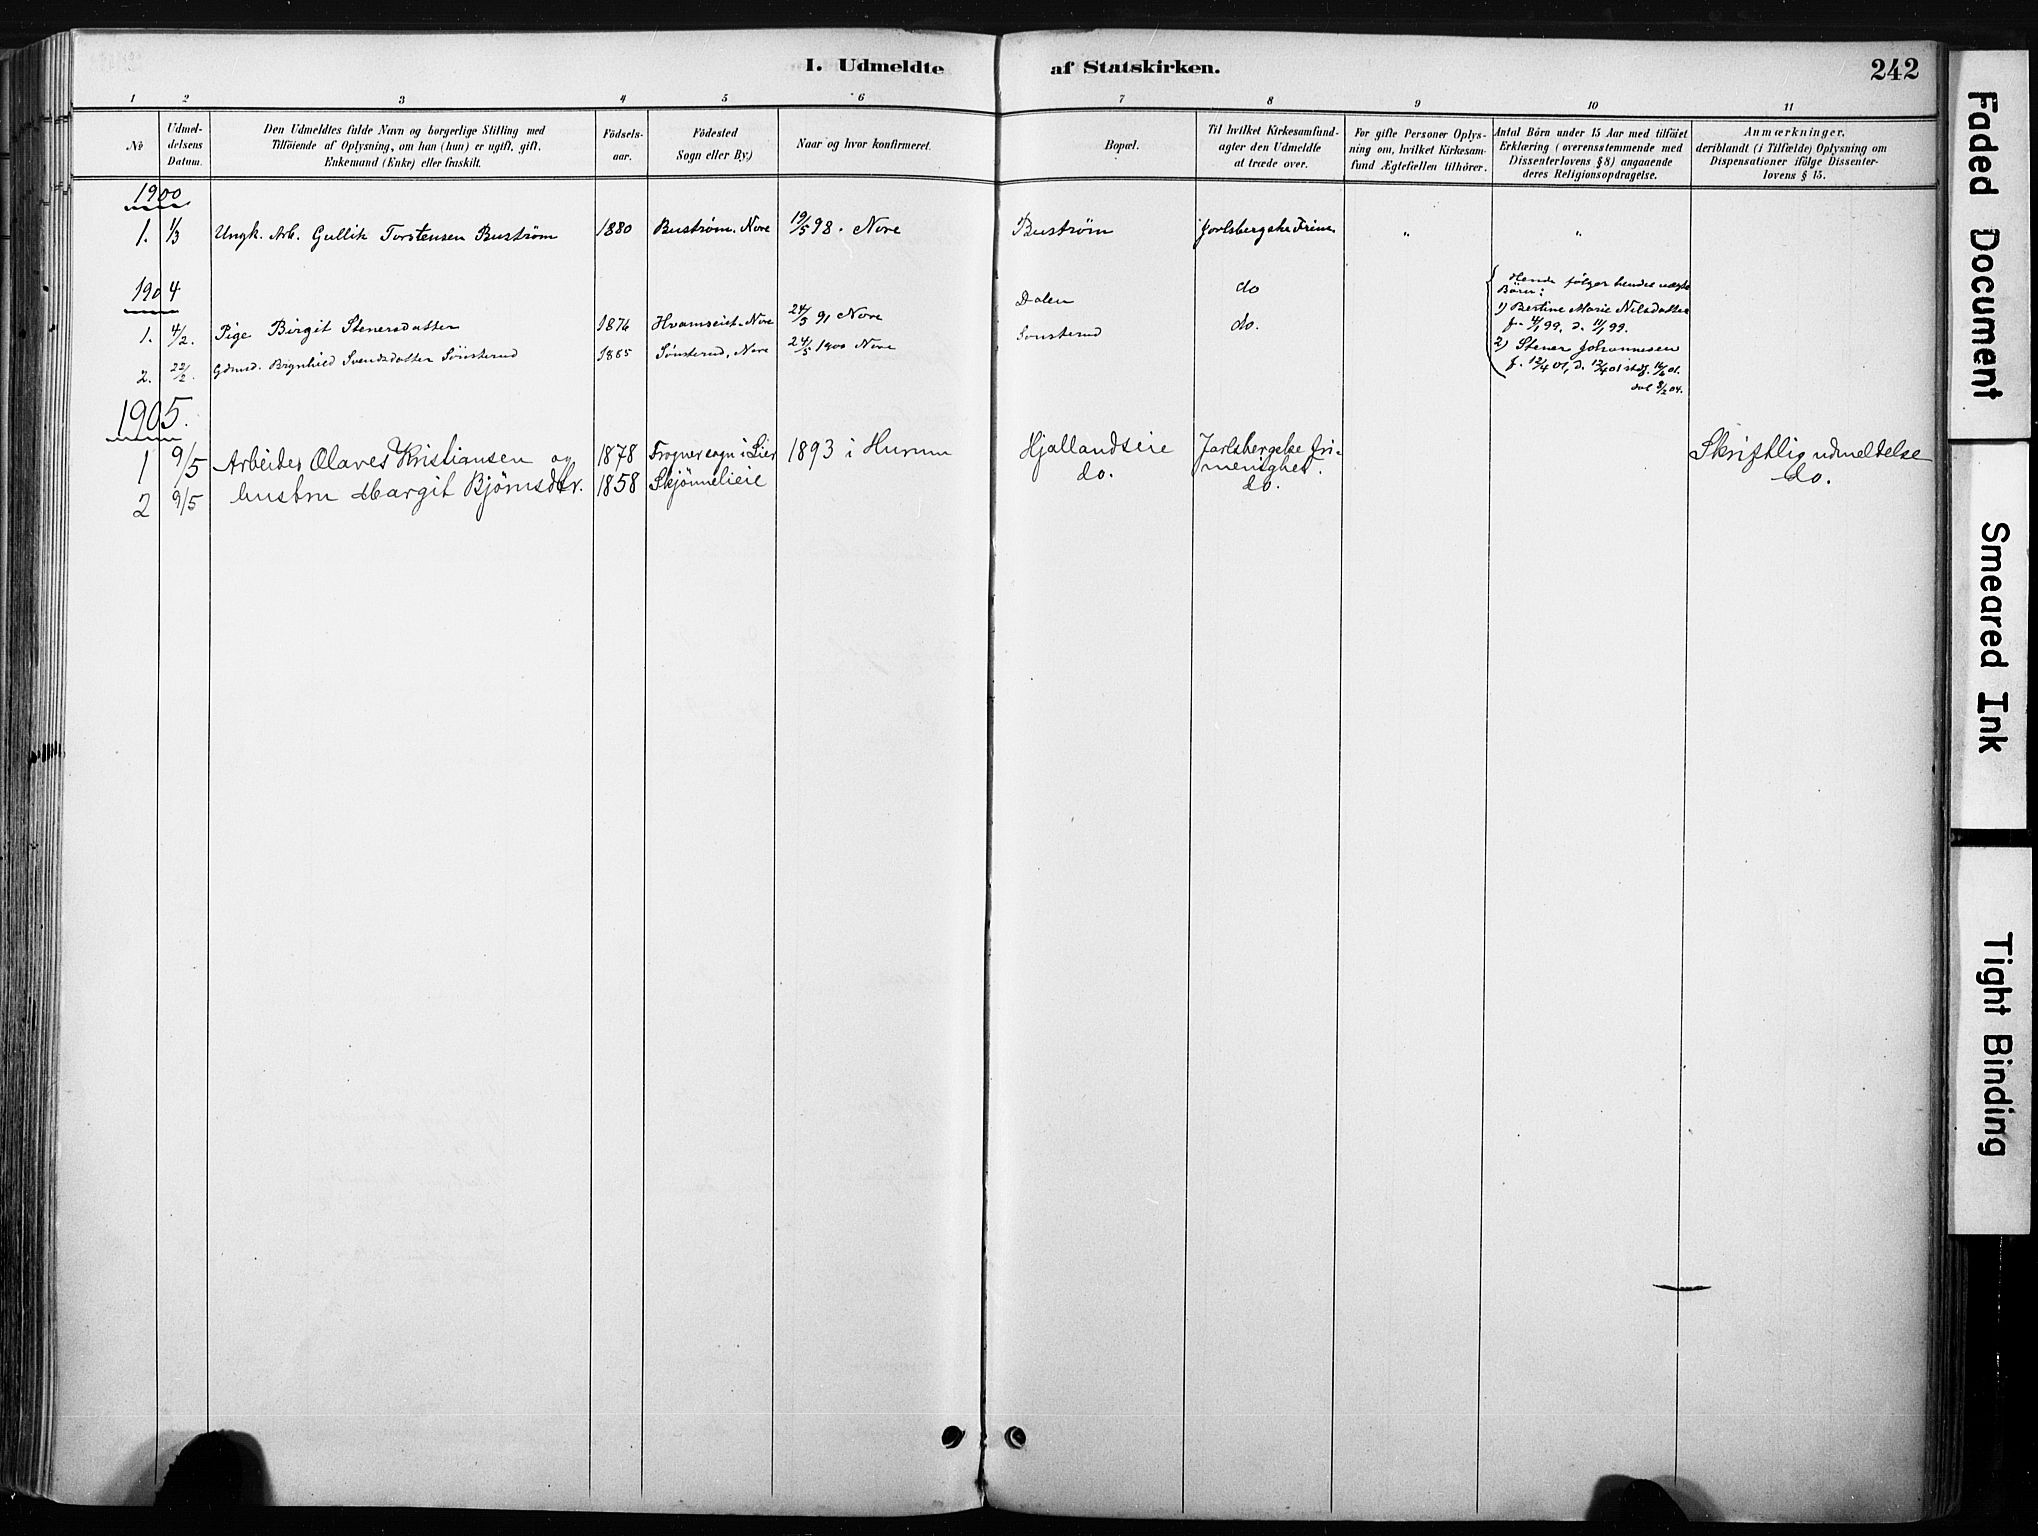 I. Udmeldte af Statskirken.
242
1 2 3 4 5 6 7 8 9 10 11
No
Udmel-
delsens
Datum.
Den Udmeldtes fulde Navn og borgerlige Stilling med
Tilföiende af Oplysning, om han (hun) er ugift, gift,
Enkemand (Enke) eller fraskilt.
Födsels-
aar.
Födested
Sogn eller By.)
Naar og hvor konfirmeret.
Bopæl.
Til hvilket Kirkesamfund
agter den Udmeldte
at træde over.
For gifte Personer Oplys-
ning om, hvilket Kirkesam-
fund Ægtefællen tilhörer.
Antal Börn under 15 Aar med tilföiet
Erklæring (overensstemmende med
Dissenterlovens § 8) angaaende
deres Religionsopdragelse.
Anmærkninger,
deriblandt (i Tilfælde) Oplysning om
Dispensationer ifölge Dissenter-
lovens § 15.
1900
1. 1/3 Ungk. Arb. Gullik Torstensen Buström 1880 Buström. Nore 19/5 98. Nore Buström Jarlsbergske Frim. " "
1904
1. 4/2. Pige Birgit Stenersdatter 1876 Nore 24/5 91 Nore Dalen do
2. 22/2. Gdmd. Svendsdatter Sönsterud 1885 Sönsterud, Nore 24/5 1900 Nore Sönsterud do.
Hende følger hendes uægte
Börn:
1) Bertine Marie Nilsdatter
f. 4/1 99. d. 11/1 99.
2) Stener Johannesen
f. 12/4 01, d. 12/4 01 stdf. 16/6 01.
1905.
1 9/5 Arbeider Olaves Kristiansen og 1878 Frogner sogn i Lier 1893 i Hurum Hjallandseie Jarlsbergske fri-
menighet. Skriftlig udmeldelse
2 9/5 hustru Margit Björnsdtr. 1858 Skjönnelieie do. do. do.
Faded Document
Smeared Ink
Tight Binding